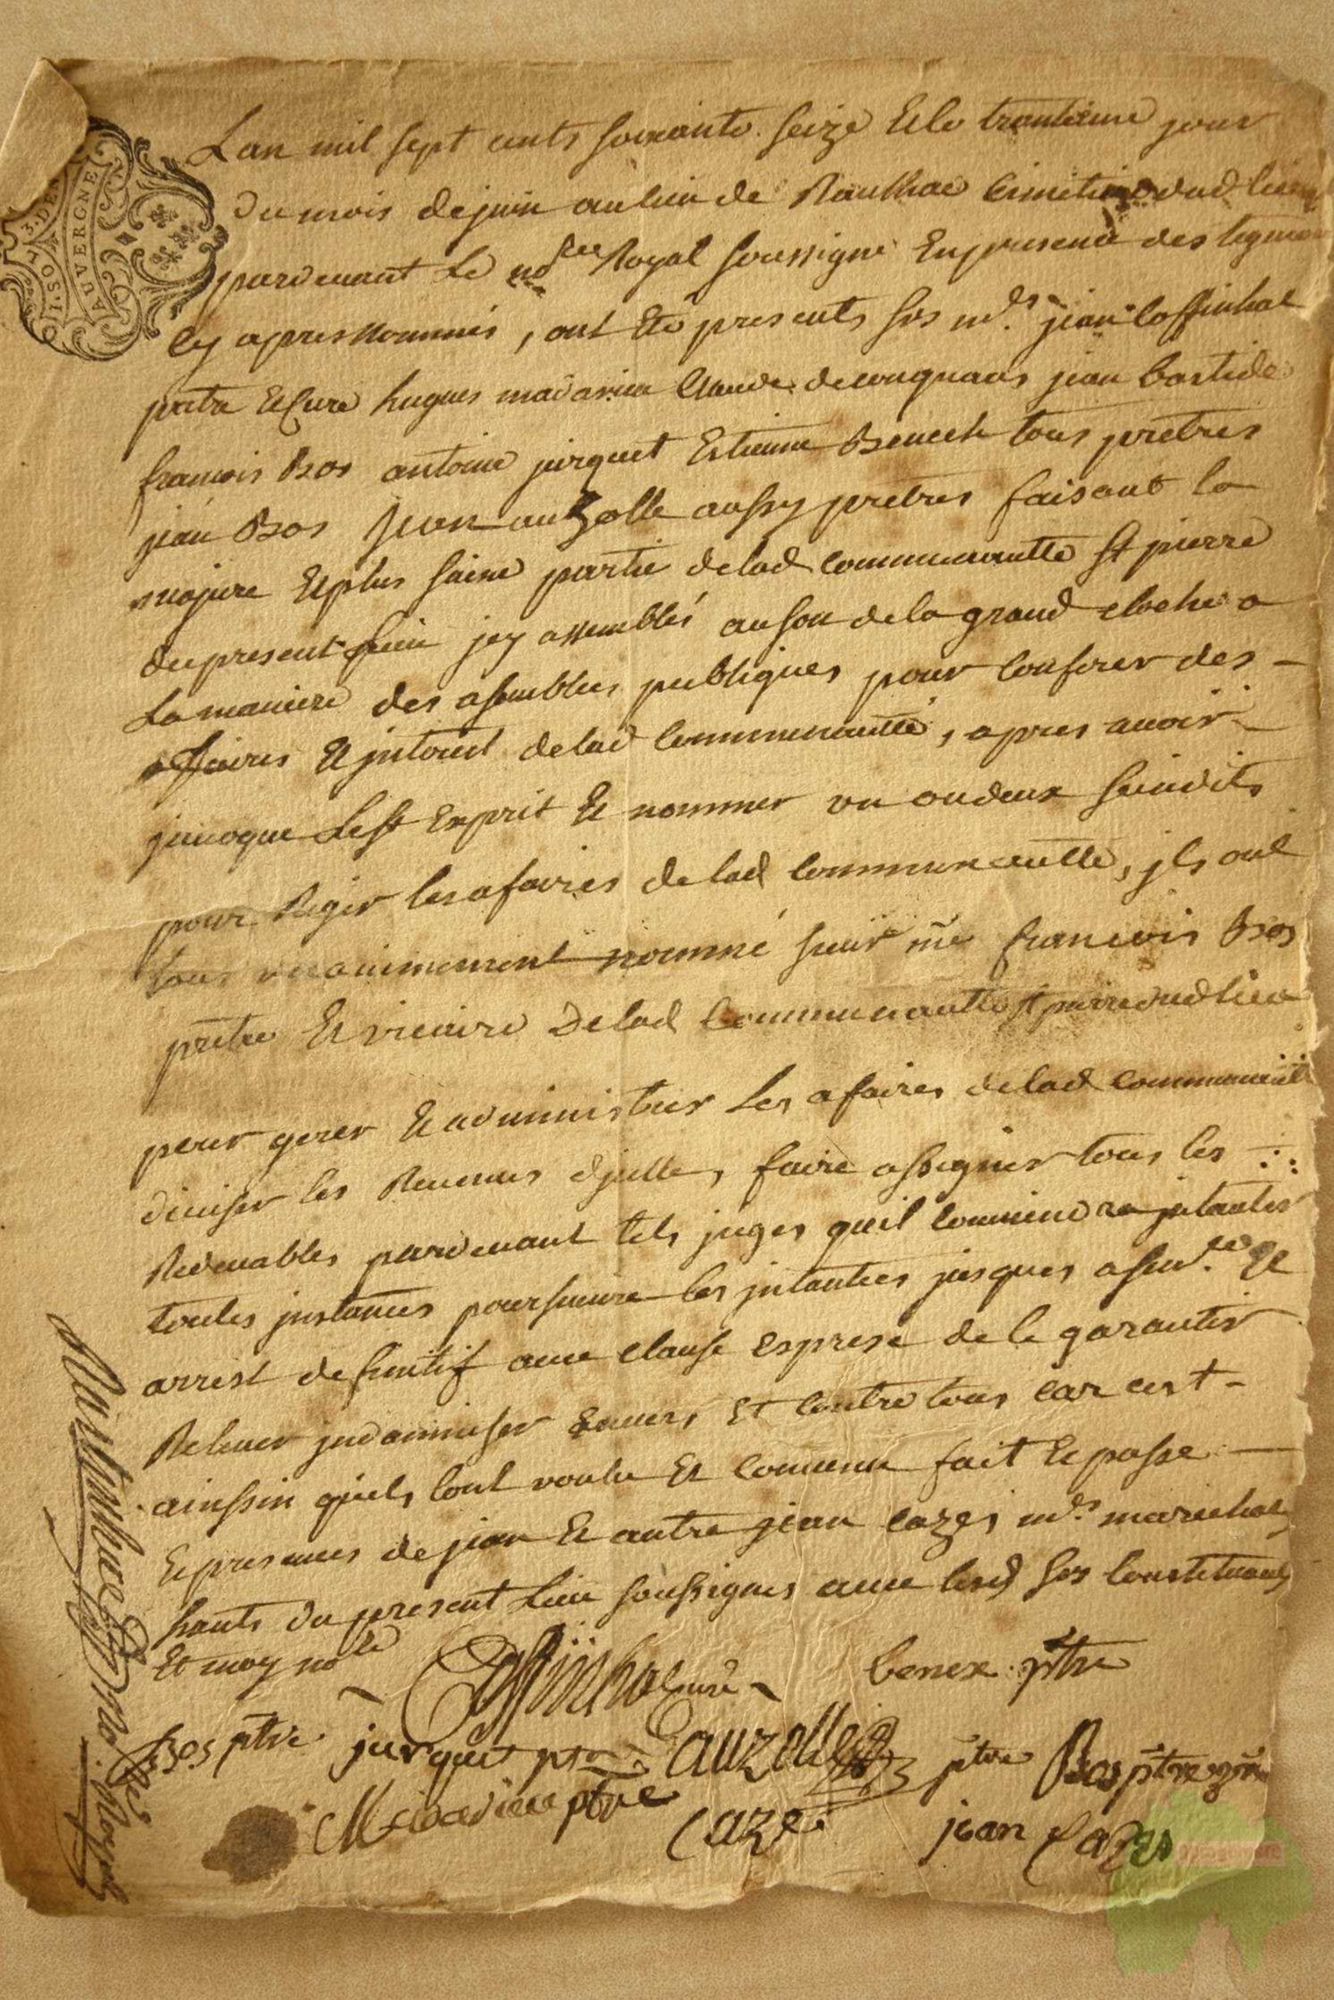 I.SOL 3.DEN
AUVERGNE
Lan mil sept cents soixante seize & le trantieme jour
du mois de juin au lieu de Raulhac cimetiere dud lieu
pardevant Le nore Royal soussigné En presence des tegmoins
Cy apres Nommés, ont Eté presents srs mrs jean Coffinhal
pretre & Curé hugues madarieu Claude deconquans jean bastide
francois Bos antoine jurquet Estienne Benech tous pretres
jean Bos Jean auzolle aussy pretres faisant la
majure & plus saine partie delad communautte st pierre
du present Lieu jcy assemblés au son de la grand cloche a
La maniere des assemblées publiques pour Conferer des
affaires & jnterest delad Communautté, apres avoir
jnvoque Le st Esprit & nommer un ou deux scindits
pour Regir les afaires delad Communautte, jls ont
tous unanimement nommé sieur me francois Bos
pretre & vicaire Delad Communautte st pierre dud lieu
pour gerer & administrer Les afaires delad communauté
diviser les Revenus djcelle, faire assigner tous les
Redevables pardevant tels juges quil conviendra jntanter
toutes jnstances poursuivre les jntantées jusques a sence &
arrest definitif avec clause esprese de le garantir
Relever jndamniser envers Et Contre tous car cest
ainssin quils lont voulu & convenu fait & passe
& presences de jean & autre jean cazes mds marechals
hants du present Lieu soussignes avec lesd srs Constituants
Et moy nore
Coffinhal curé
benex ptre
Bos ptre
jurquet ptre
auzolle ptre
Bos ptre
Madarieu ptre
Caze
jean Cazes
no Royal